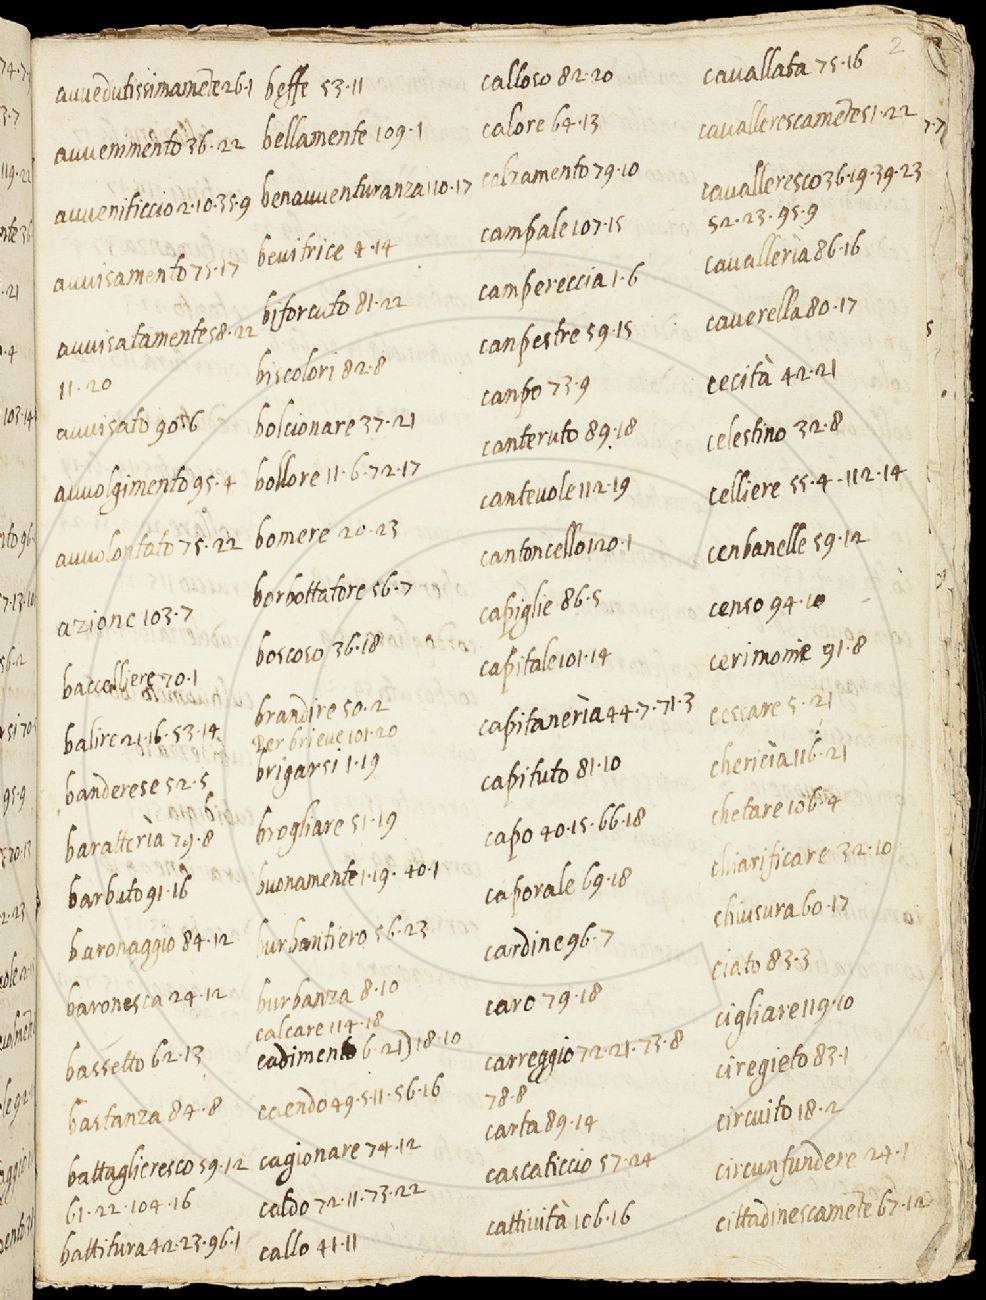 2
avvedutissimamēte 26·1
avvemmento 36·22
avveniticcio 2·10·35·9
avvisamento 75·17
avvisatamente 58·22
11·20
avvisato 90·6
avvolgimento 95·4
avvolontato 75·22
azione 103·7
baccelliere 70·1
balire 21·16·53·14
banderese 52·5
baratterìa 79·8
barbuto 91·16
baronaggio 84·12
baronesca 24·12
bassetto 62·13
bastanza 84·8
battaglieresco 59·12
61·22·104·16
battitura 42·23·96·1
beffe 53·11
bellamente 109·1
benavventuranza 110·17
bevitrice 4·14
biforcuto 81·22
biscolori 82·8
bolcionare 37·21
bollore 11·6·72·17
bomere 20·23
borbottatore 56·7
boscoso 36·18
brandire 50·2
Per brieve 101·20
brigarsi 1·19
brogliare 51·19
buonamente 1·19·40·1
burbantiero 56·23
burbanza 8·10
calcare 114·18
cadimento 6·21) 18·10
caendo 49·5·11·56·16
cagionare 74·12
caldo 72·11·73·22
callo 41·11
calloso 82·20
calore 64·13
calzamento 79·10
campale 107·15
campereccia 1·6
canpestre 59·15
canpo 73·9
canteruto 89·18
cantevole 112·19
cantoncello 120·1
capiglie 86·5
capitale 101·14
capitanerìa 44·7·71·3
capituto 81·10
capo 40·15·66·18
caporale 69·18
cardine 96·7
caro 79·18
carreggio 72·21·73·8
78·8
carta 89·14
cascaticcio 57·24
cattività 106·16
cavallata 75·16
cavallerescamēte 51·22
cavalleresco 36·19·39·23
52·23·95·9
cavallerìa 86·16
caverella 80·17
cecità 42·21
celestino 32·8
celliere 55·4·112·14
cenbanelle 59·12
censo 94·10
cerimonie 91·8
cescare 5·21
chericìa 116·21
chetare 106·4
chiarificare 32·10
chiusura 60·17
ciato 83·3
cigliare 119·10
ciregieto 83·1
circuito 18·2
circunfundere 24·1
cittadinescamēte 67·12